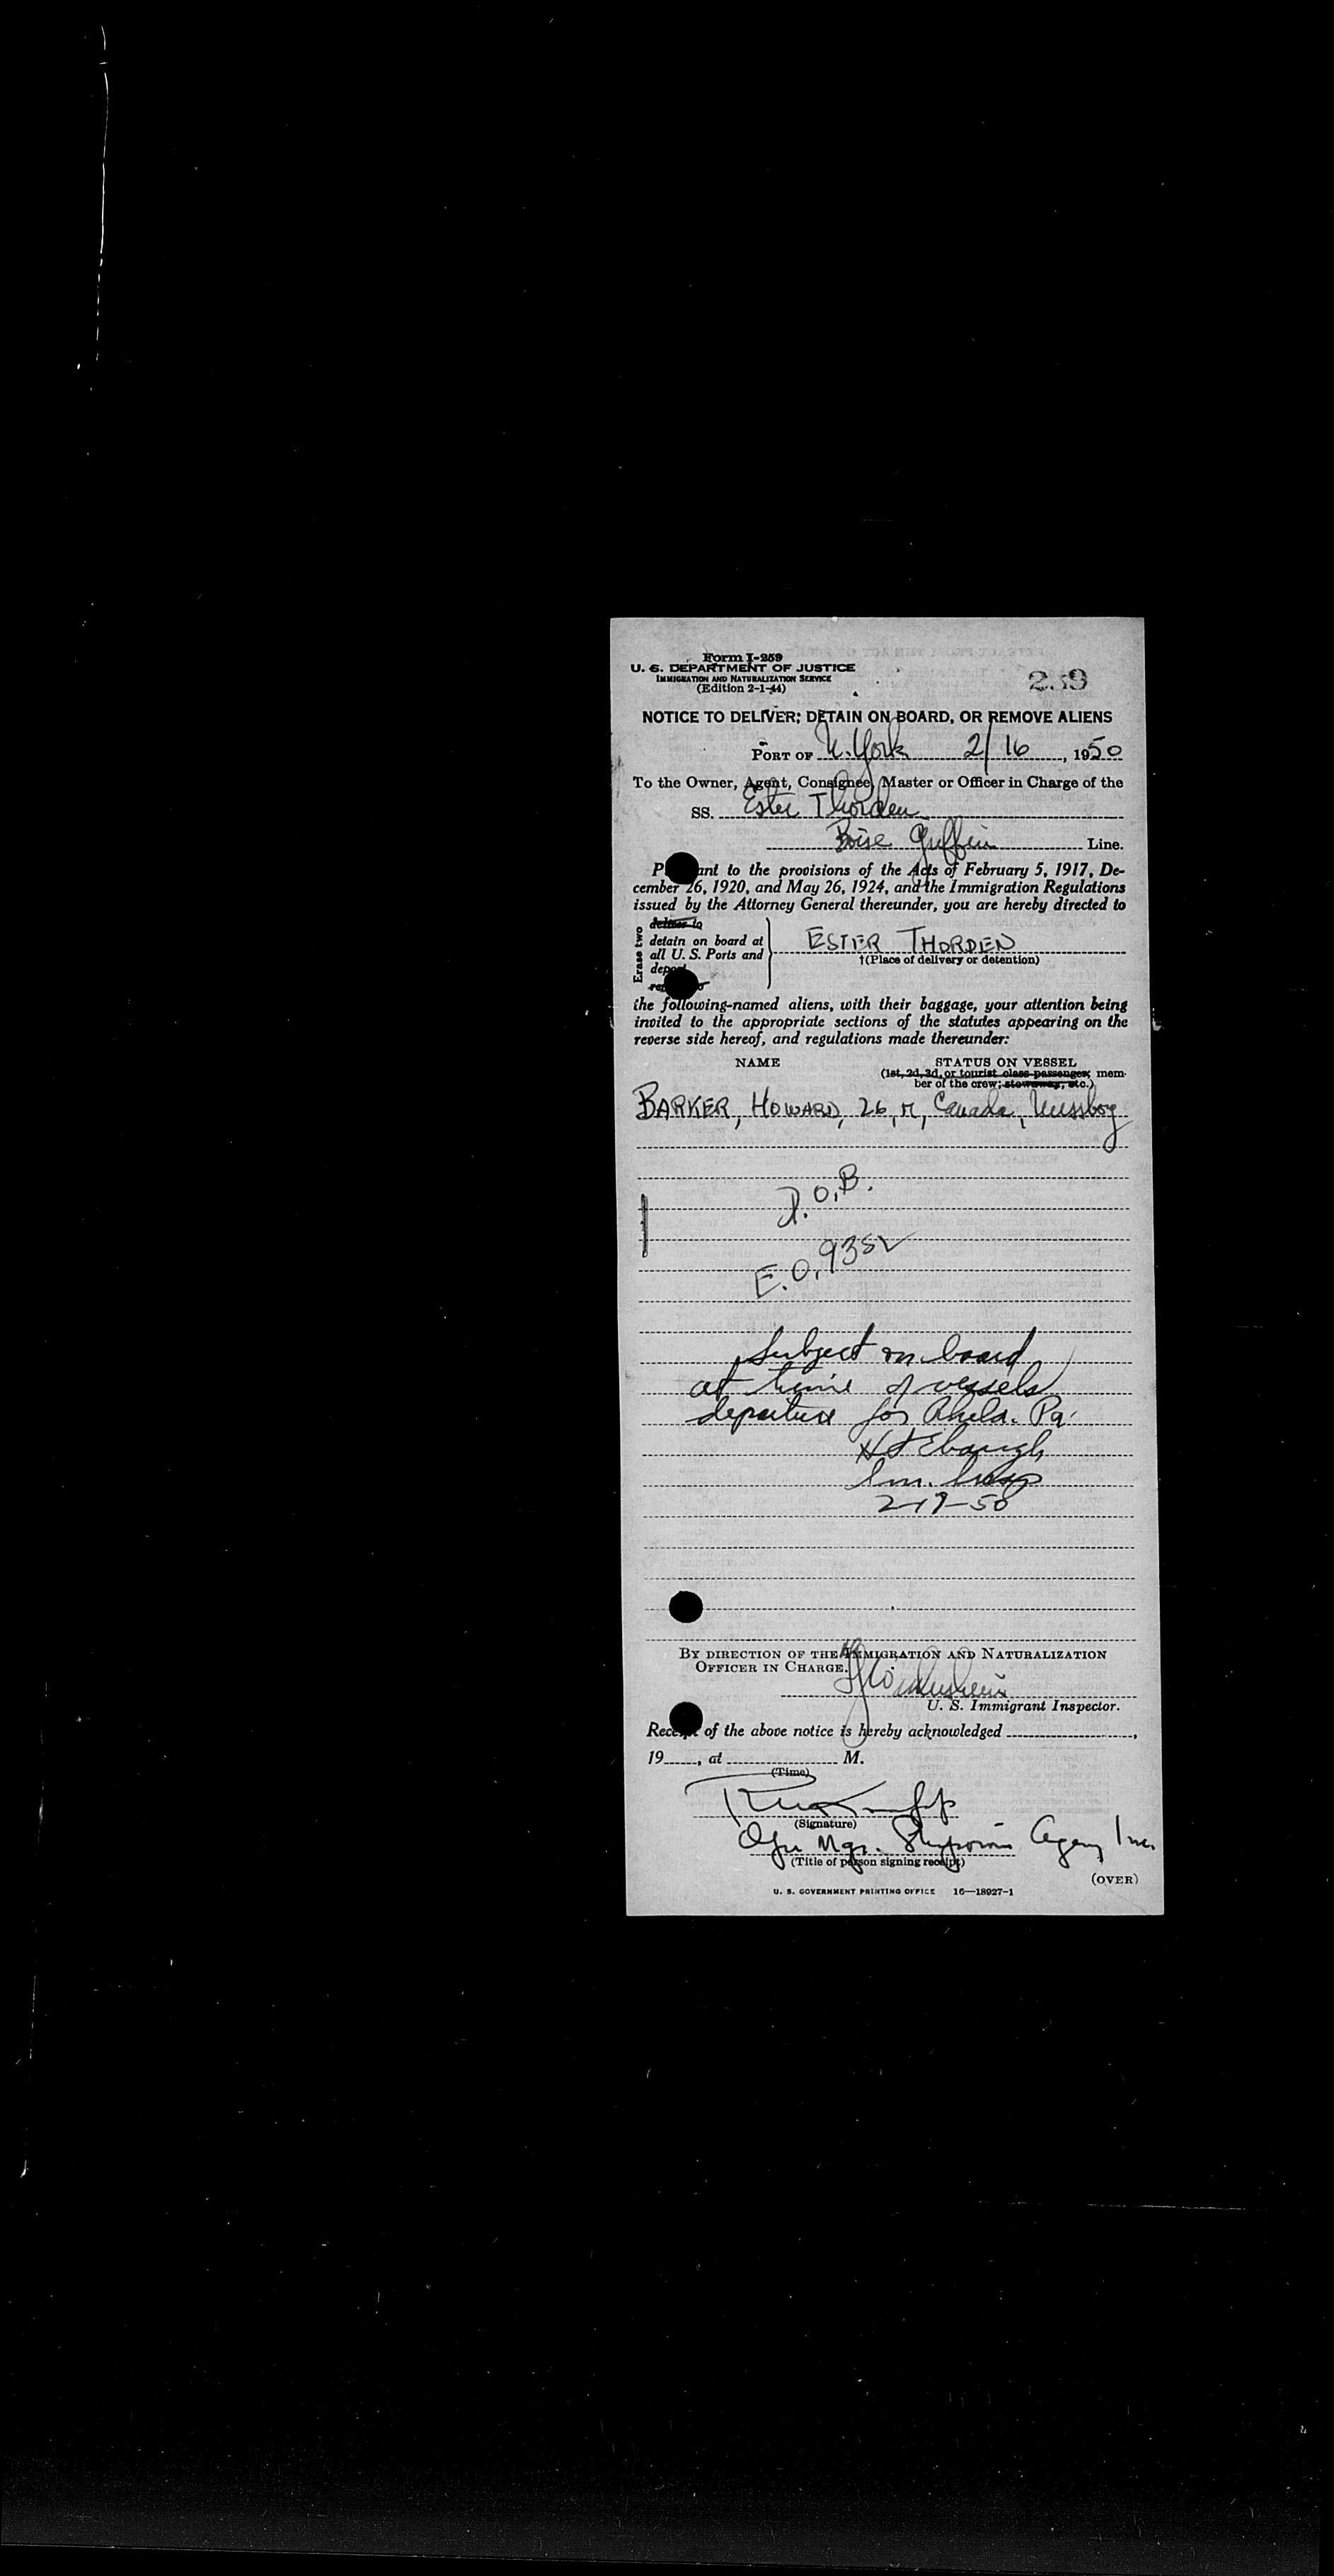 Form I-259
U. S. DEPARTMENT OF JUSTICE
IMMIGRATION AND NATURALIZATION SERVICE
(Edition 2-1-44)
NOTICE TO DELIVER; DETAIN ON BOARD, OR REMOVE ALIENS
PORT OF N. York 2/16, 1950
To the Owner, Agent, Consignee, Master or Officer in Charge of the
SS. Ester Thorden
Boise Griffin Line.
P ant to the provisions of the Acts of February 5, 1917, De-
cember 26, 1920, and May 26, 1924, and the Immigration Regulations
issued by the Attorney General thereunder, you are hereby directed to
Erase two
deliver to
detain on board at
all U. S. Ports and
ESTER THORDEN
†(Place of delivery or detention)
the following-named aliens, with their baggage, your attention being
invited to the appropriate sections of the statutes appearing on the
reverse side hereof, and regulations made thereunder:
NAME STATUS ON VESSEL
(1st, 2d, 3d, or tourist class passenger; mem-
ber of the crew; stowaway, etc.)
BARKER, HOWARD, 26, M, Canada, Messboy
D.O.B.
E.O. 9352
Subject on board
at time of vessels
departure for Phila. Pa.
Ebaugh
Im. Insp
2-19-50
BY DIRECTION OF THE IMMIGRATION AND NATURALIZATION
OFFICER IN CHARGE.
U. S. Immigrant Inspector.
Receipt of the above notice is hereby acknowledged
19 , at M.
(Time)
(Signature)
Mgr. Agency Inc.
(Title of person signing receipt)
(OVER)
U. S. GOVERNMENT PRINTING OFFICE 16—18927-1